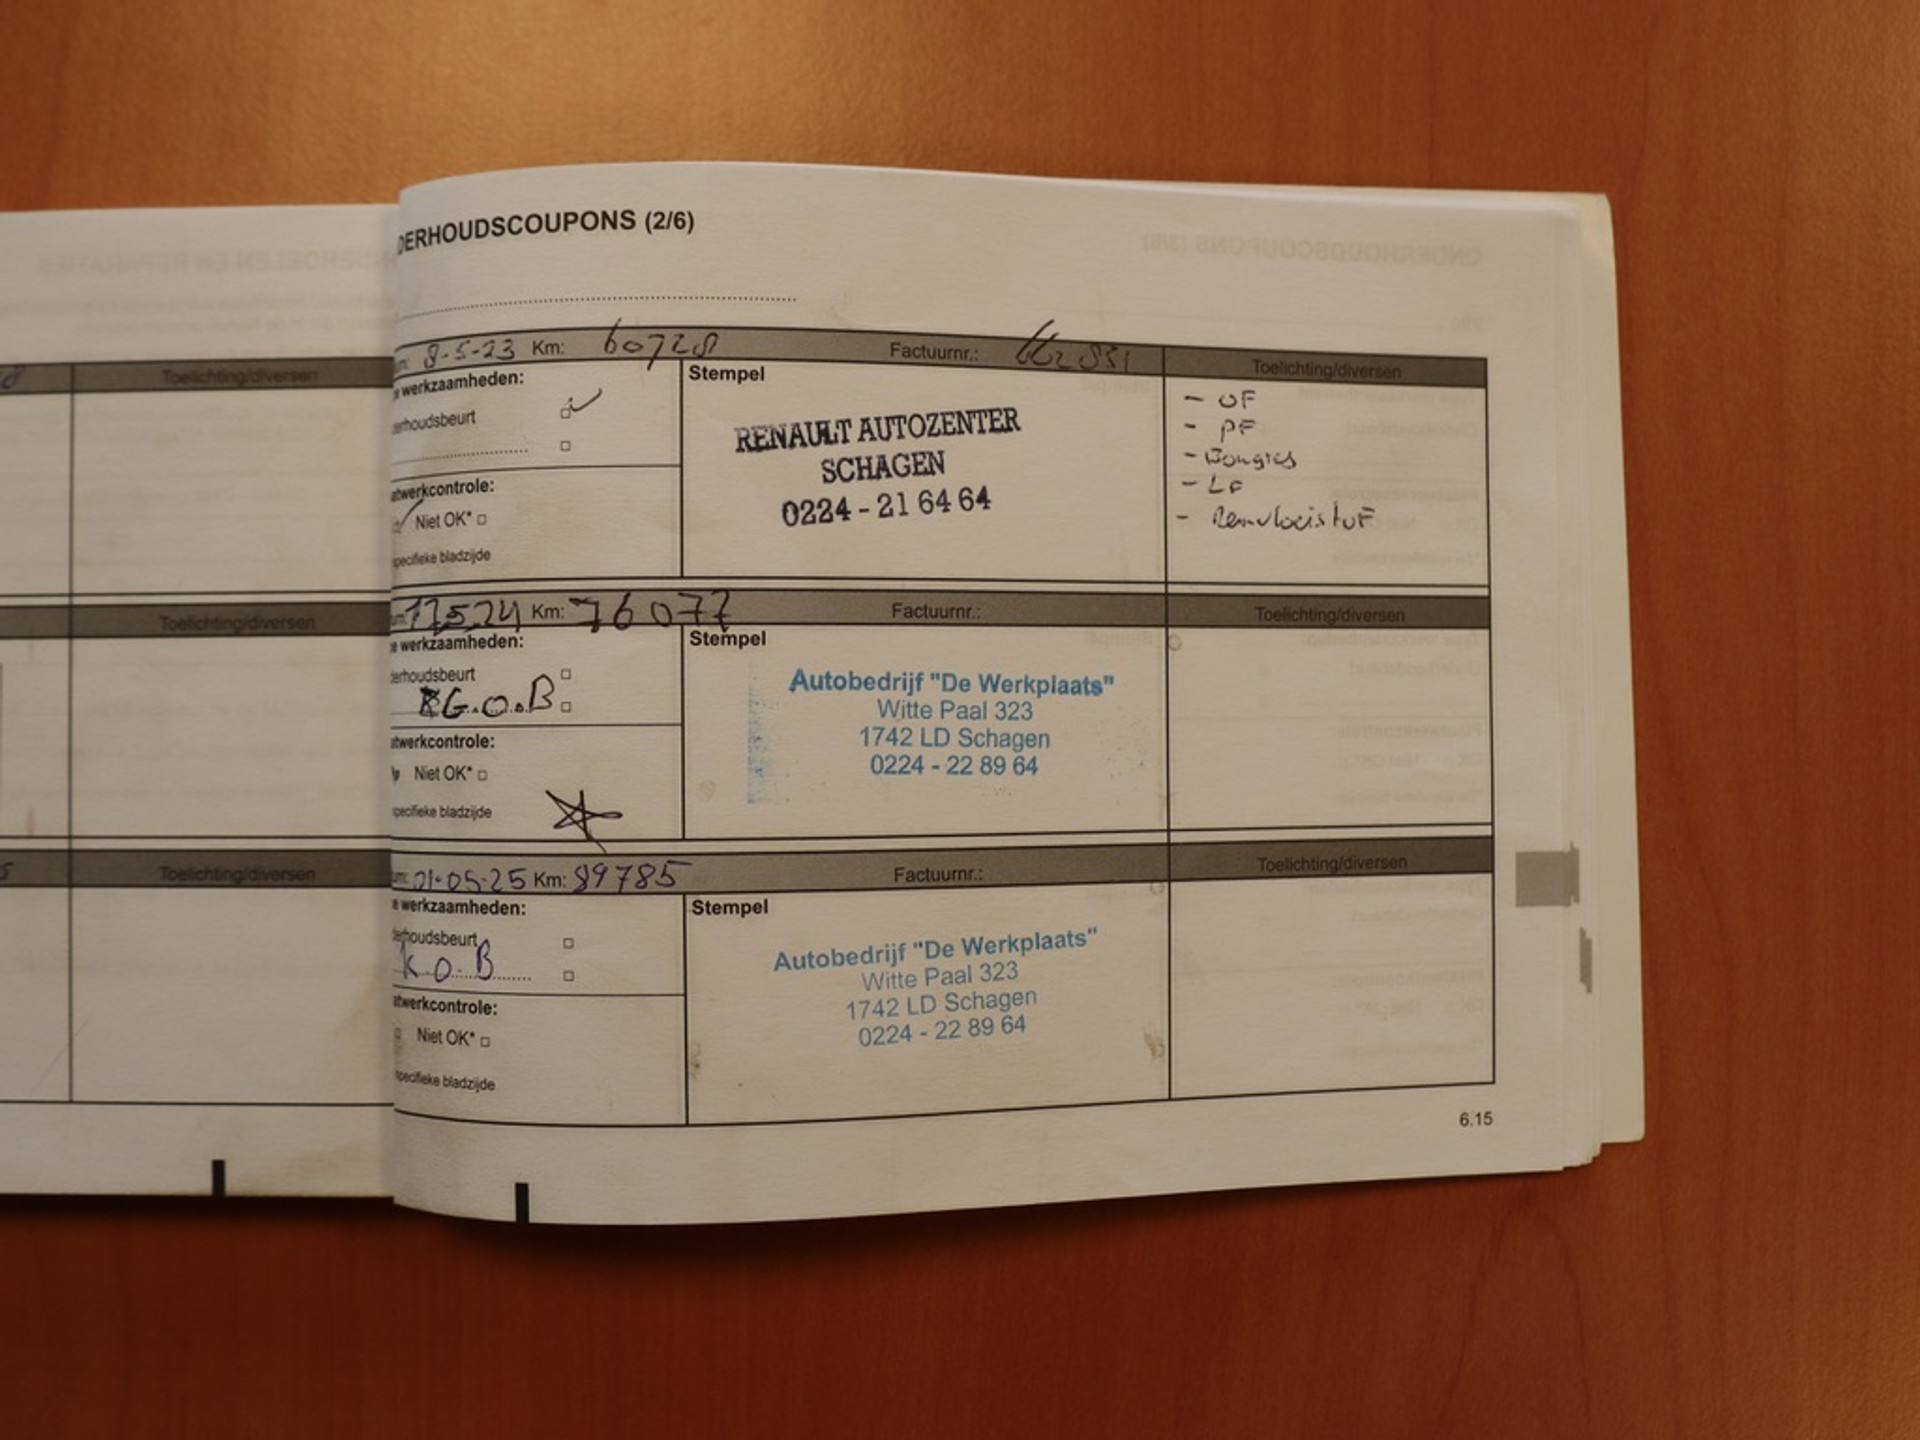 DERHOUDSCOUPONS (2/6)
8-5-23 Km: 60728 Factuurnr.: Toelichting/diversen
werkzaamheden: Stempel
erhoudsbeurt
RENAULT AUTOZENTER
SCHAGEN
0224 - 21 64 64
- OF
- PF
- Bougies
- LF
- Remvloeistof
atwerkcontrole:
Niet OK*
specifieke bladzijde
Toelichting/diversen
Km: 76077 Factuurnr.: Toelichting/diversen
werkzaamheden: Stempel
erhoudsbeurt
G.O.B
Autobedrijf "De Werkplaats"
Witte Paal 323
1742 LD Schagen
0224 - 22 89 64
atwerkcontrole:
Niet OK*
specifieke bladzijde
Toelichting/diversen
01-05-25 Km: 89785 Factuurnr.: Toelichting/diversen
werkzaamheden: Stempel
erhoudsbeurt
K.O.B
Autobedrijf "De Werkplaats"
Witte Paal 323
1742 LD Schagen
0224 - 22 89 64
atwerkcontrole:
Niet OK*
specifieke bladzijde
Toelichting/diversen
6.15